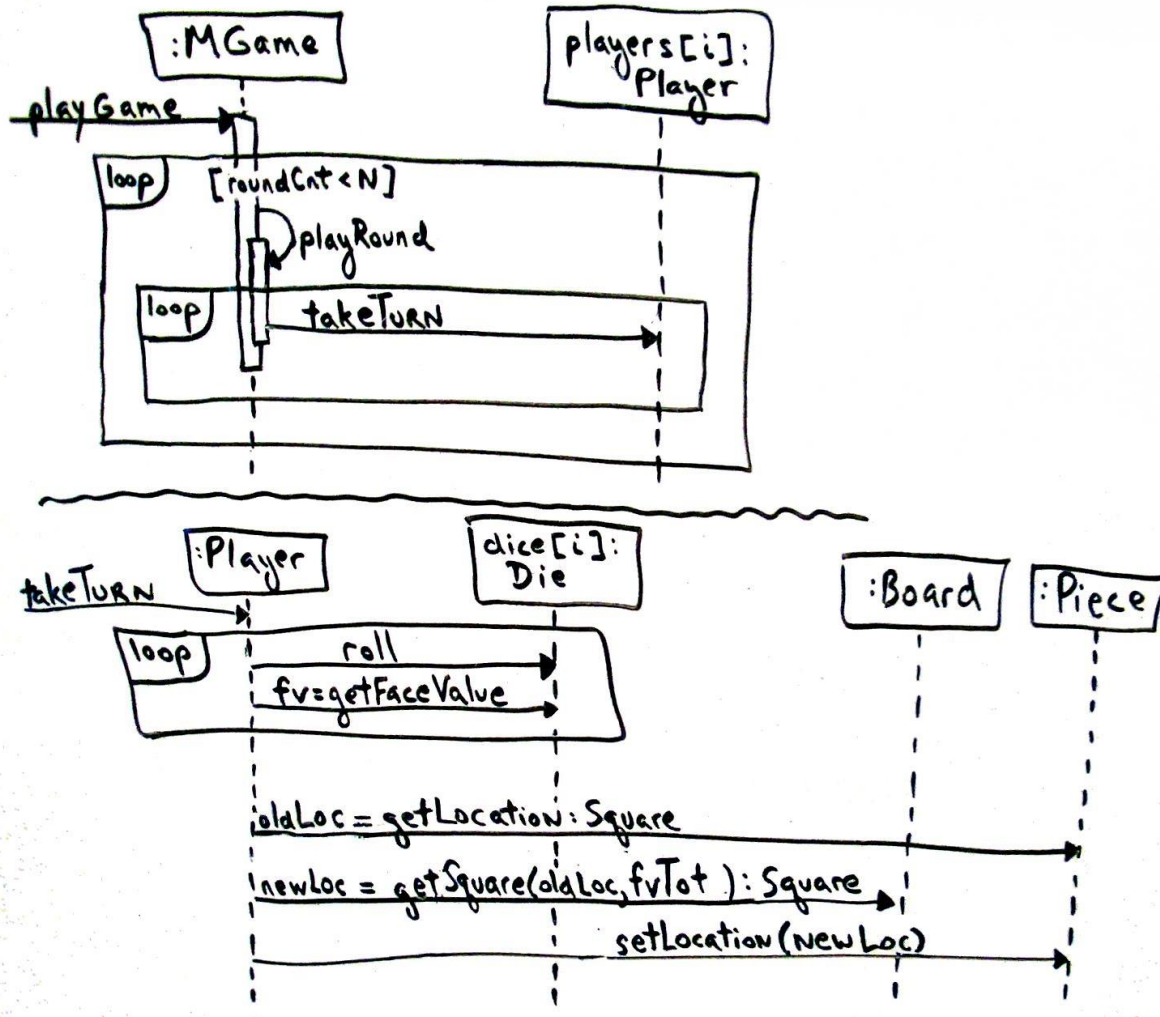 :MGame
players[i]:
Player
playGame
loop
[roundCnt < N]
playRound
loop
takeTURN
:Player
dice[i]:
Die
:Board
:Piece
takeTURN
loop
roll
fv=getFaceValue
oldLoc = getLocation: Square
newLoc = getSquare(oldLoc,fvTot ): Square
setLocation(NewLoc)